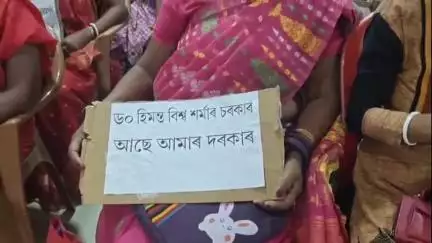 ড০ হিমন্ত বিশ্ব শৰ্মাৰ চৰকাৰ
আছে আমাৰ দৰকাৰ